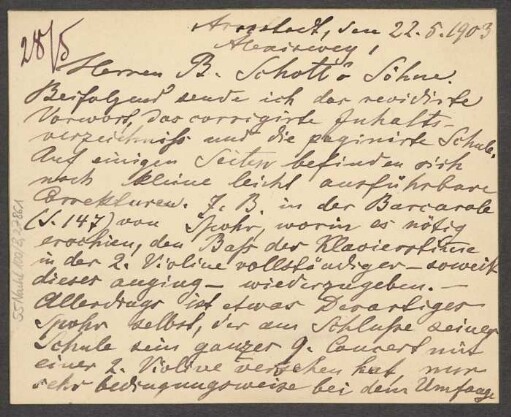 28/5
Arnstadt, den 22.5.1903
Alexisweg 1
Herren B. Schott's Söhne.
Beifolgend sende ich das revidirte
Vorwort, das corrigirte Inhalts-
verzeichniss und die paginirte Schule.
Auf einigen Seiten befinden sich
noch kleine leicht ausführbare
Correkturen. Z. B. in der Barcarole
(S. 147) von Spohr, worin es nötig
erschien, den Bass der Klavierstimme
in der 2. Violine vollständiger – soweit
dieses anging – wiederzugeben. –
Allerdings ist etwas Derartiges
Spohr selbst, der am Schlusse seiner
Schule sein ganzes 9. Concert mit
einer 2. Violine versehen hat nur
sehr bedingungsweise bei dem Umfange